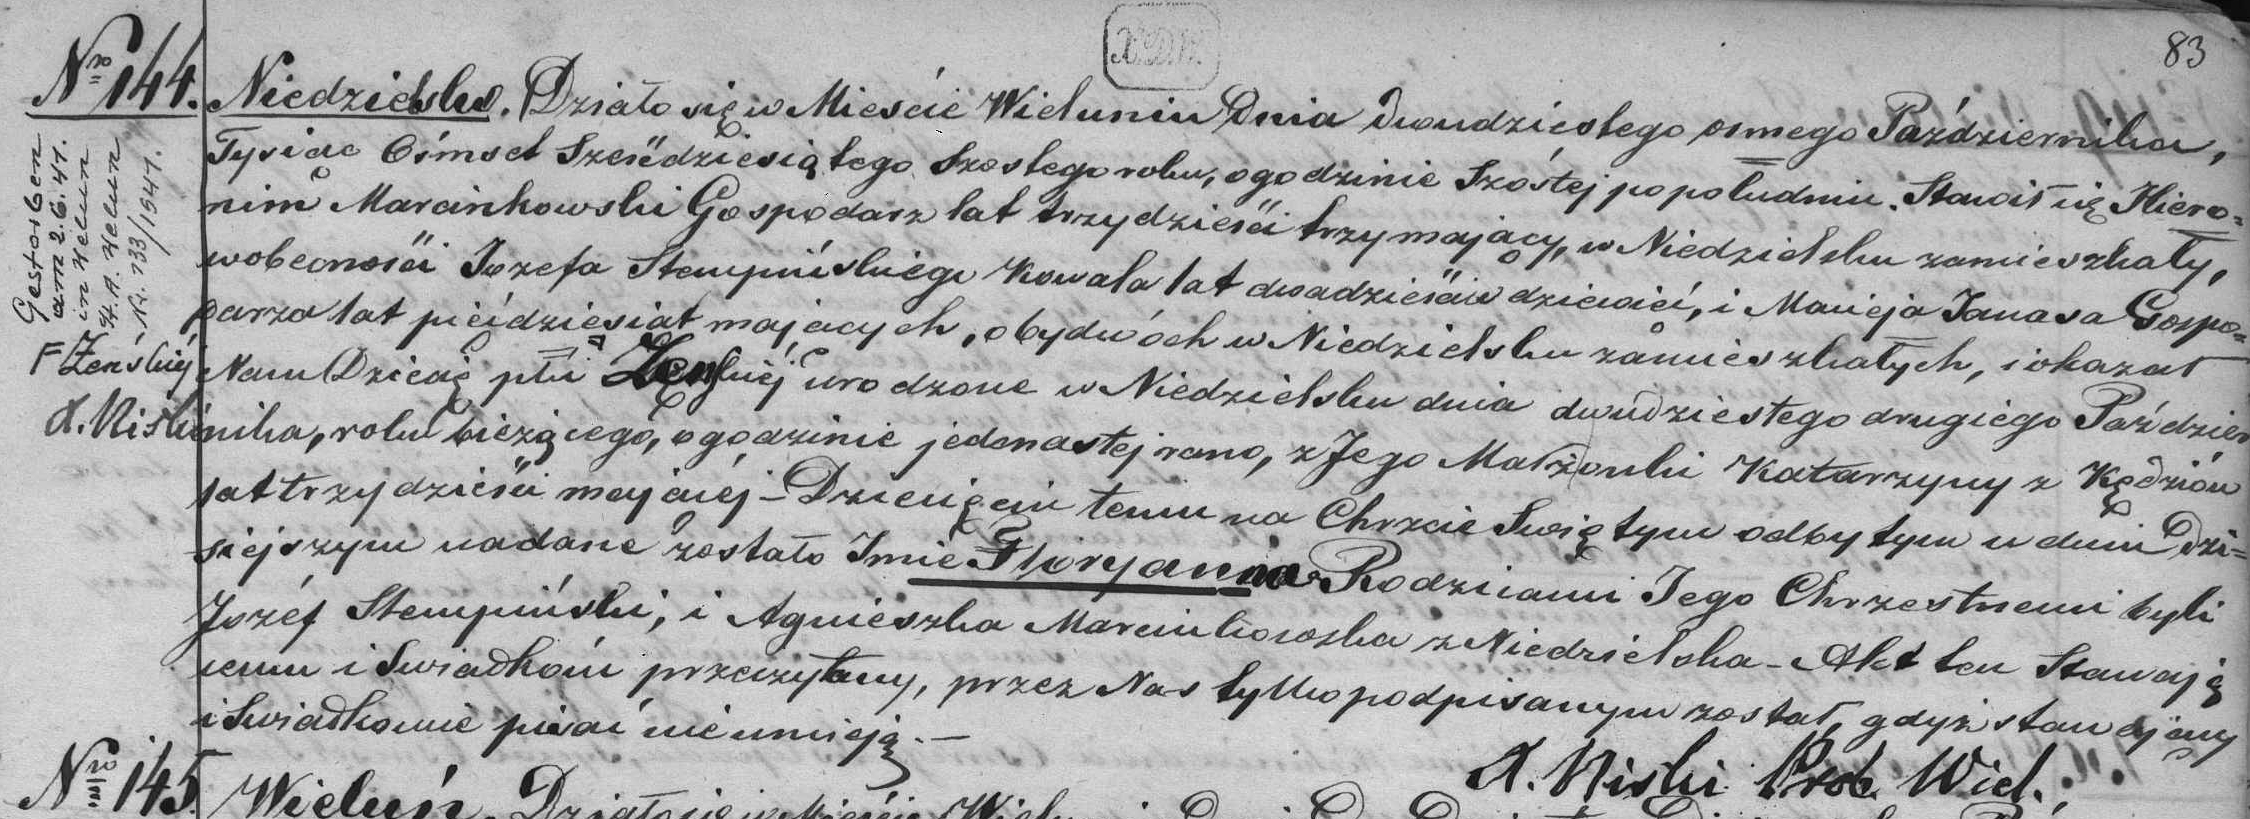 83
X.D.W.
Nro 144. Niedzielsko. Działo się w Mieście Wieluniu Dnia dwudziestego osmego Października,
Tysiac Ośmset Sześćdziesiątego Szostego roku, o godzinie Szóstej popołudniu. Stawił się Hiero=
nim Marcinkowski Gospodarz lat trzydzieści trzy mający, w Niedzielsku zamieszkały,
w obecności Jozefa Stempińskiego Kowala lat dwadzieścia dziewięć, i Macieja Janasa Gospo=
darza lat pięćdziesiat mających, obydwóch w Niedzielsku zamieszkałych, i okazał
Nam Dziecię płci Żeńskiéj urodzone w Niedzielsku dnia dwudziestego drugiego Paździer
nika, roku bieżącego, o godzinie jedenastej rano, z Jego Małżonki Katarzyny z Kędziów
lat trzydzieści mającéj – Dziecięciu temu na Chrzcie Świętym odbytym w dniu Dzi=
siejszym nadane zostało Imie Floryanna Rodzicami Jego Chrzestnemi byli
Jozéf Stempiński, i Agnieszka Marcinkowska z Niedzielska – Akt ten Stawają
cemu i Swiadkom przeczytany, przez Nas tylko podpisanym został, gdyż stawający
i Swiadkowie pisać nie umieją. –
A. Niski Prob. Wiel.
Gestorben
am 2.6.41.
in Welun
St. A. Welun
Nr. 133/1941.
F Żeńskiéj
A. Niski
Nro 145 Wieluń. Działo się w Mieście